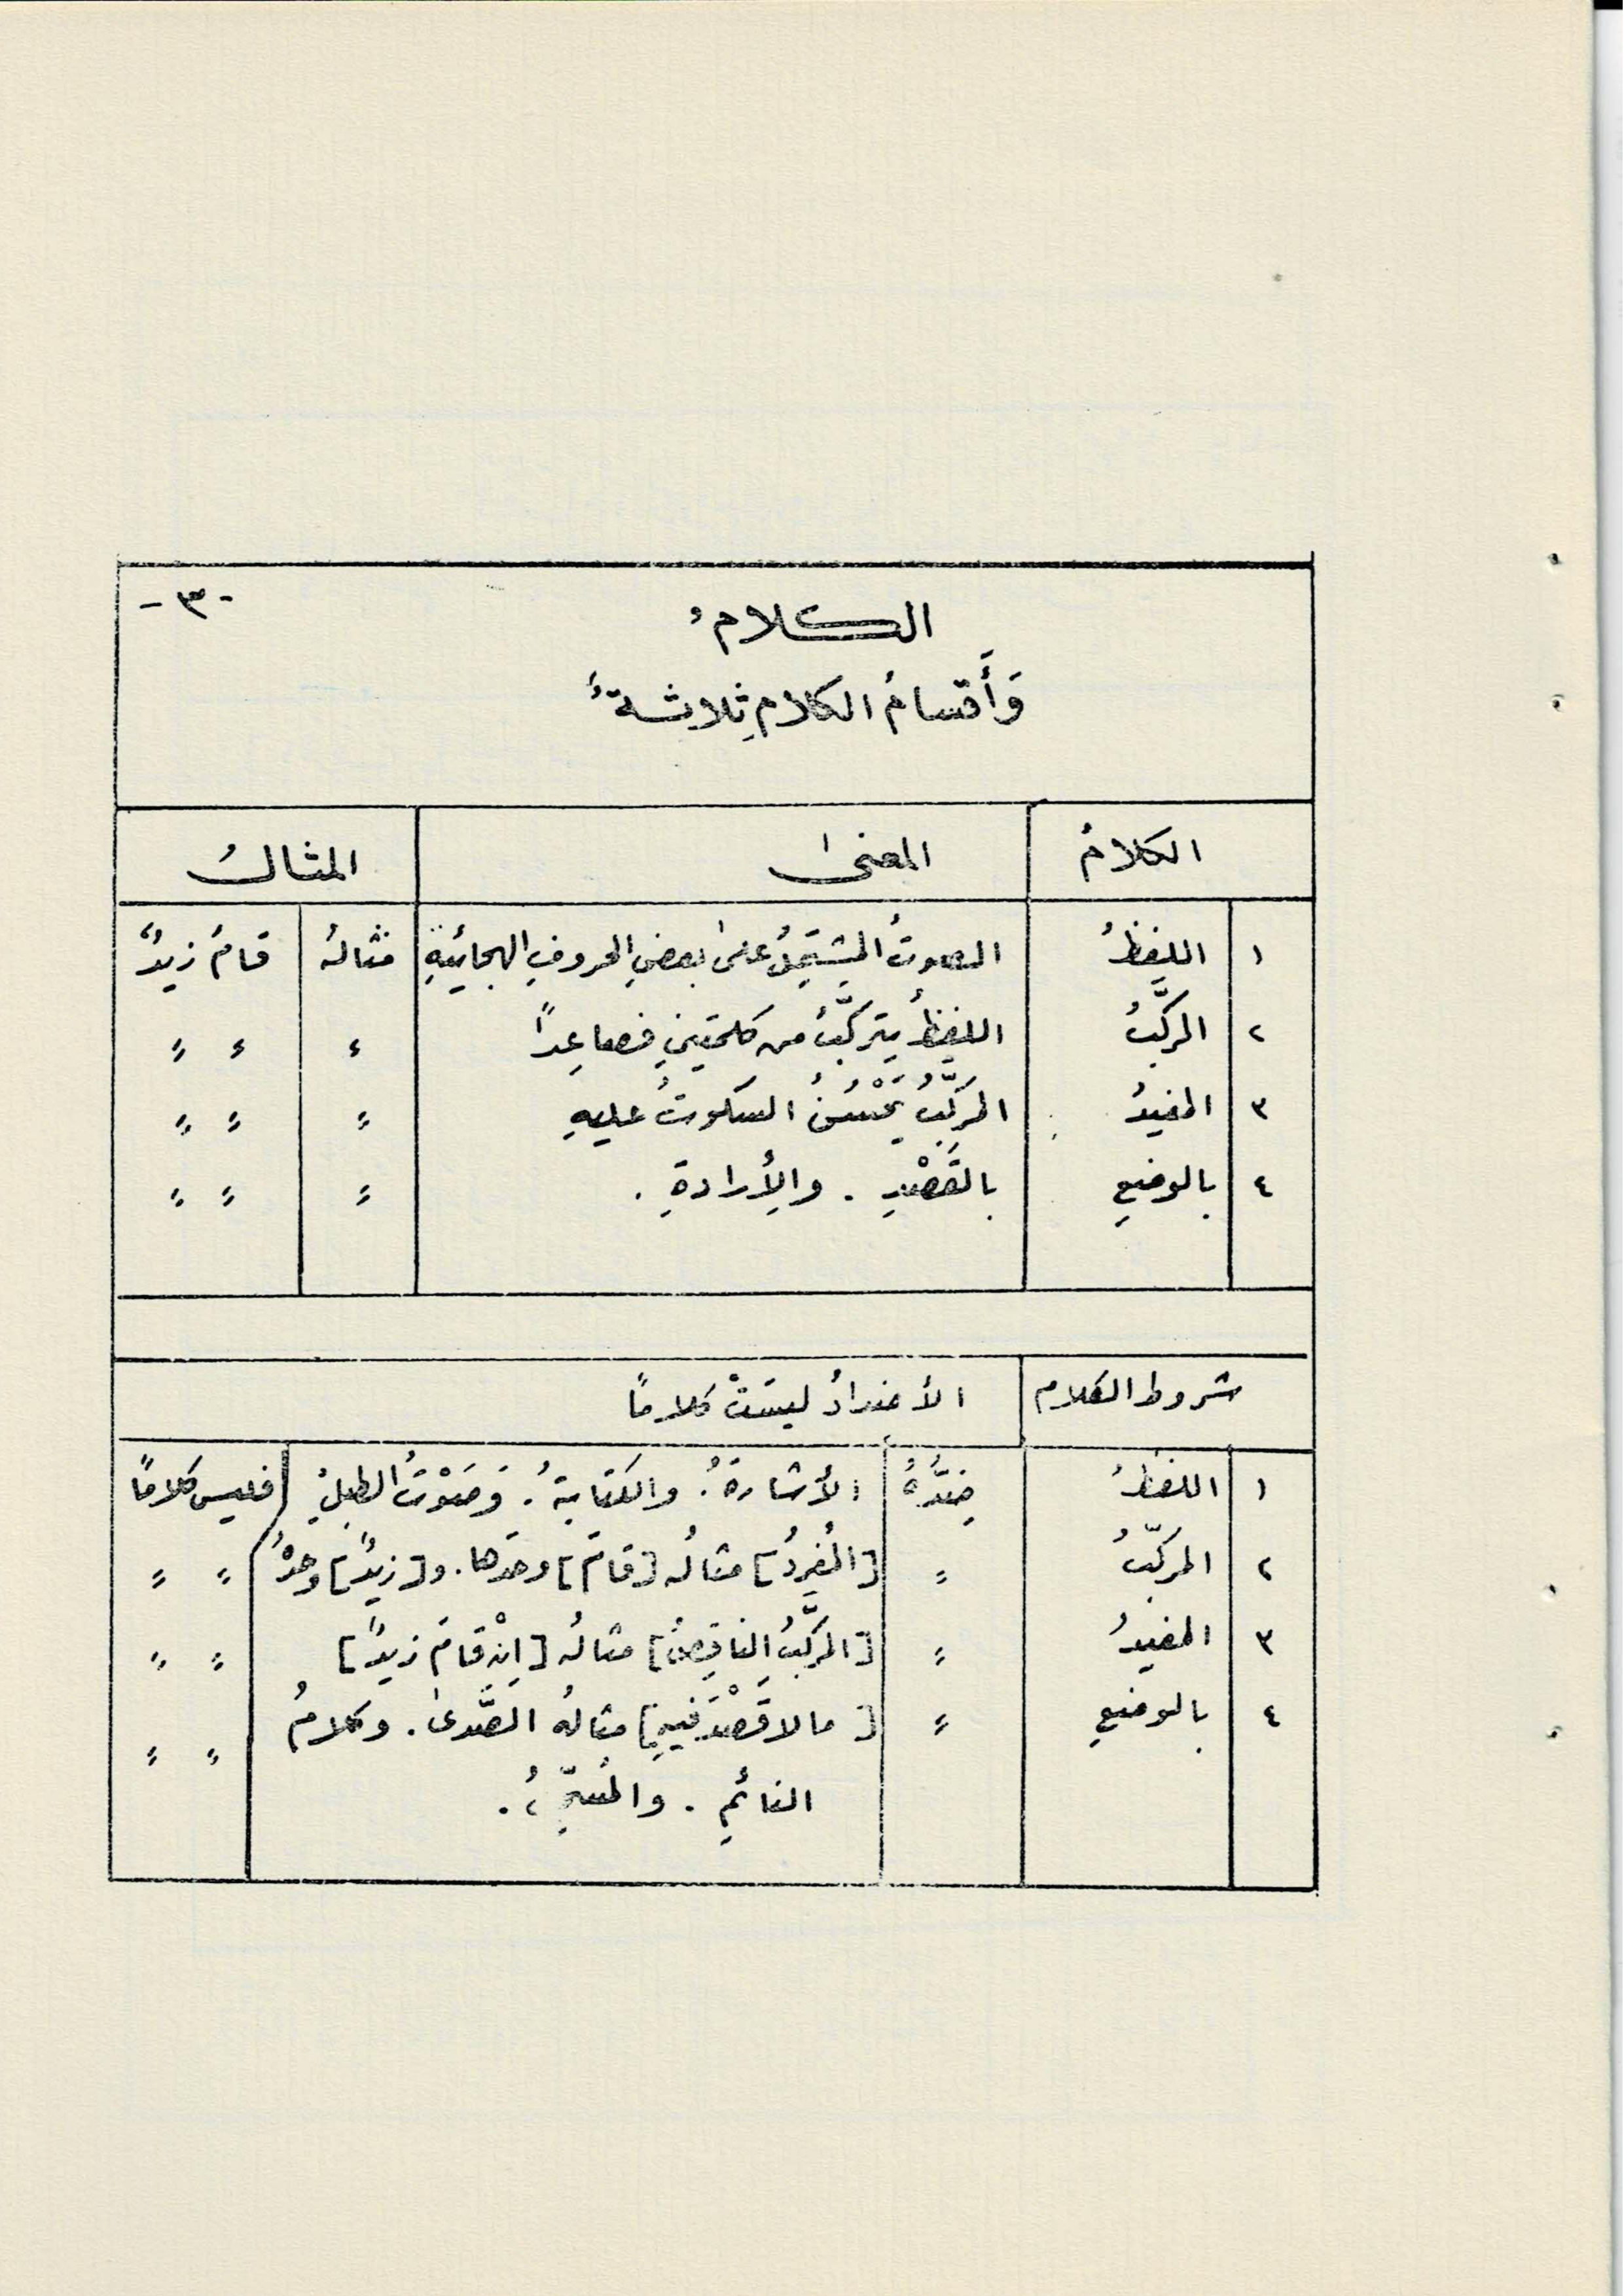 -٣-
الكلامُ
وَأَقسامُ الكلامِ ثلاثةٌ
الكلامُ المعنىٰ المثالُ
١ اللفظُ الصوتُ المشتَمِلُ علىٰ بعضِ الحروفِ الهجائيةِ مثالهُ قامَ زيدٌ
٢ المركَّبُ اللفظُ يتركَّبُ من كلمتينِ فصاعِداً ء ء ״
٣ المفيدُ المركَّبُ يَحْسُنُ السكوتُ عليهِ ״ ״ ״
٤ بالوضعِ بالقَصْدِ . والإرادةِ . ״ ״ ״
شروط الكلام الأضدادُ ليسَتْ كلاماً
١ اللفظُ ضِدُّهُ الأشارةُ . والكتابةُ . وَصَوْتُ الطبلِ فليس كلاماً
٢ المركّبُ ״ [المُفردُ] مثالُه [قامَ] وحدَها . و[زيدٌ] وحدَهُ ״ ״
٣ المفيدُ ״ [المركَّبُ الناقِصُ] مثالُه [إنْ قامَ زيدٌ] ״ ״
٤ بالوضعِ ״ [ما لا قَصْدَ فيهِ] مثالهُ الصَّدىٰ . وكلامُ ״ ״
النائمِ .